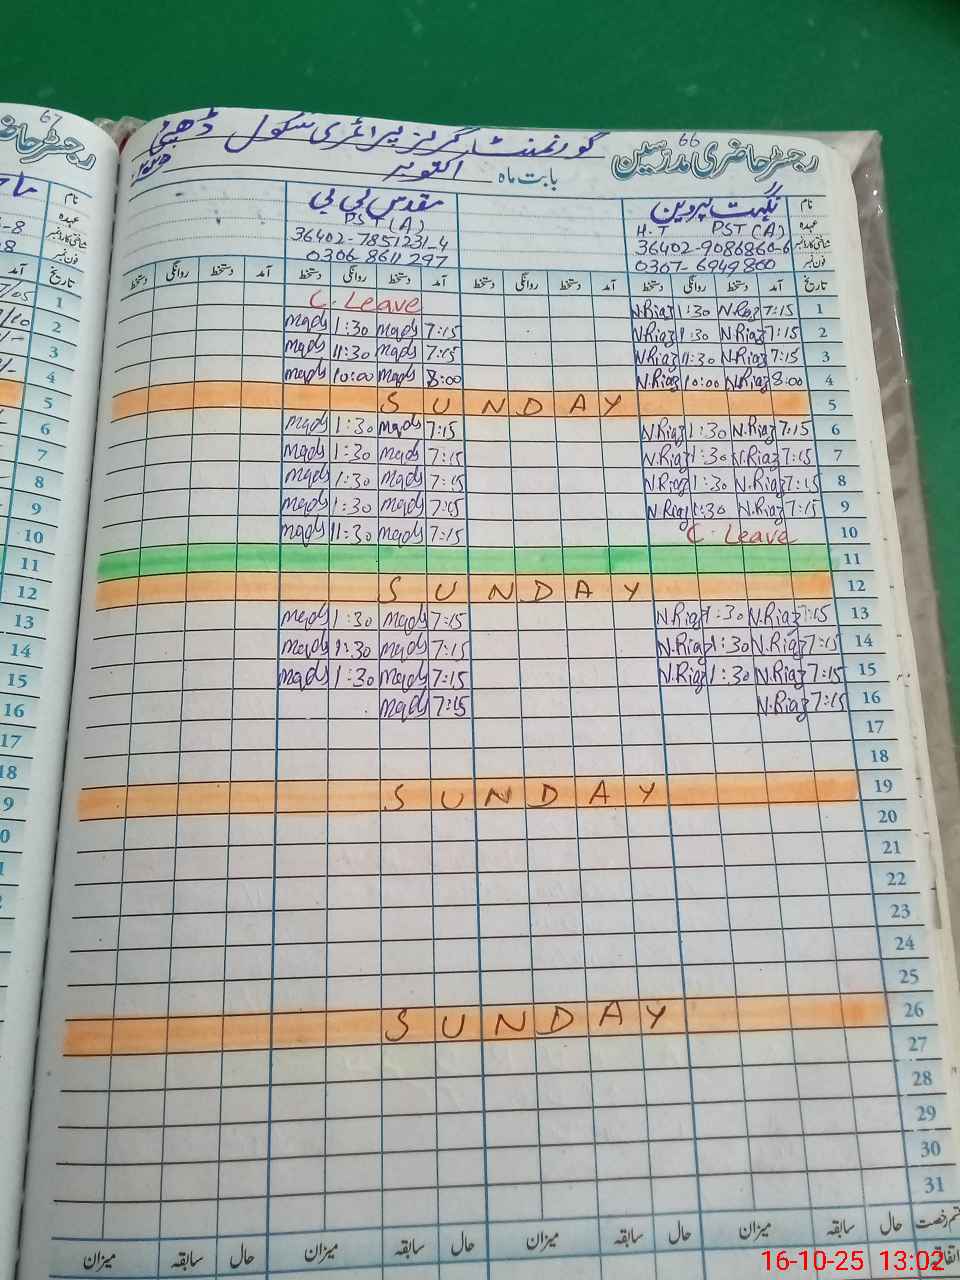 66
رجسٹر حاضری مدرسین
گورنمنٹ گرلز پرائمری سکول
بابت ماہ اکتوبر
نام نگہت پروین مقدس بی بی
عہدہ H.T PST(A) PST(A)
شناختی کارڈ نمبر 36402-9086860-6 36402-7851231-4
فون نمبر 0307-6949860 0306 8611297
تاریخ آمد دستخط روانگی دستخط آمد دستخط روانگی دستخط آمد دستخط روانگی دستخط
1 7:15 N.Riaz 1:30 N.Riaz C. Leave
2 7:15 N.Riaz 1:30 N.Riaz 7:15 maqds 1:30 maqds
3 7:15 N.Riaz 11:30 N.Riaz 7:15 maqds 11:30 maqds
4 8:00 N.Riaz 10:00 N.Riaz 8:00 maqds 10:00 maqds
5 SUNDAY
6 7:15 N.Riaz 1:30 N.Riaz 7:15 maqds 1:30 maqds
7 7:15 N.Riaz 1:30 N.Riaz 7:15 maqds 1:30 maqds
8 7:15 N.Riaz 1:30 N.Riaz 7:15 maqds 1:30 maqds
9 7:15 N.Riaz 1:30 N.Riaz 7:15 maqds 1:30 maqds
10 C. Leave 7:15 maqds 11:30 maqds
11
12 SUNDAY
13 7:15 N.Riaz 1:30 N.Riaz 7:15 maqds 1:30 maqds
14 7:15 N.Riaz 1:30 N.Riaz 7:15 maqds 1:30 maqds
15 7:15 N.Riaz 1:30 N.Riaz 7:15 maqds 1:30 maqds
16 7:15 N.Riaz 7:15 maqds
17
18
19 SUNDAY
20
21
22
23
24
25
26 SUNDAY
27
28
29
30
31
قسم رخصت حال سابقہ میزان حال سابقہ میزان حال سابقہ میزان حال سابقہ میزان
16-10-25 13:02
67